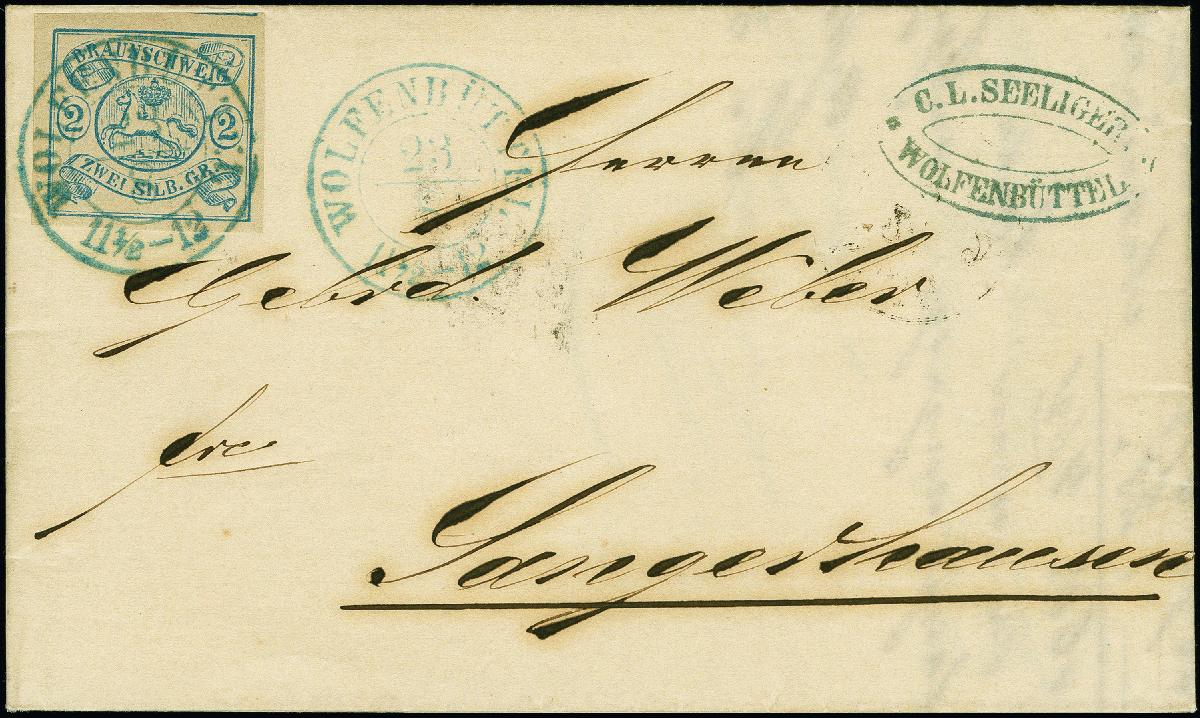 BRAUNSCHWEIG
2 2
ZWEI SILB. GR.
11½–12
WOLFENBÜTTEL
23
11½–12
C. L. SEELIGER
WOLFENBÜTTEL
Herren
Gebrd. Weber
frc
Sangerhausen